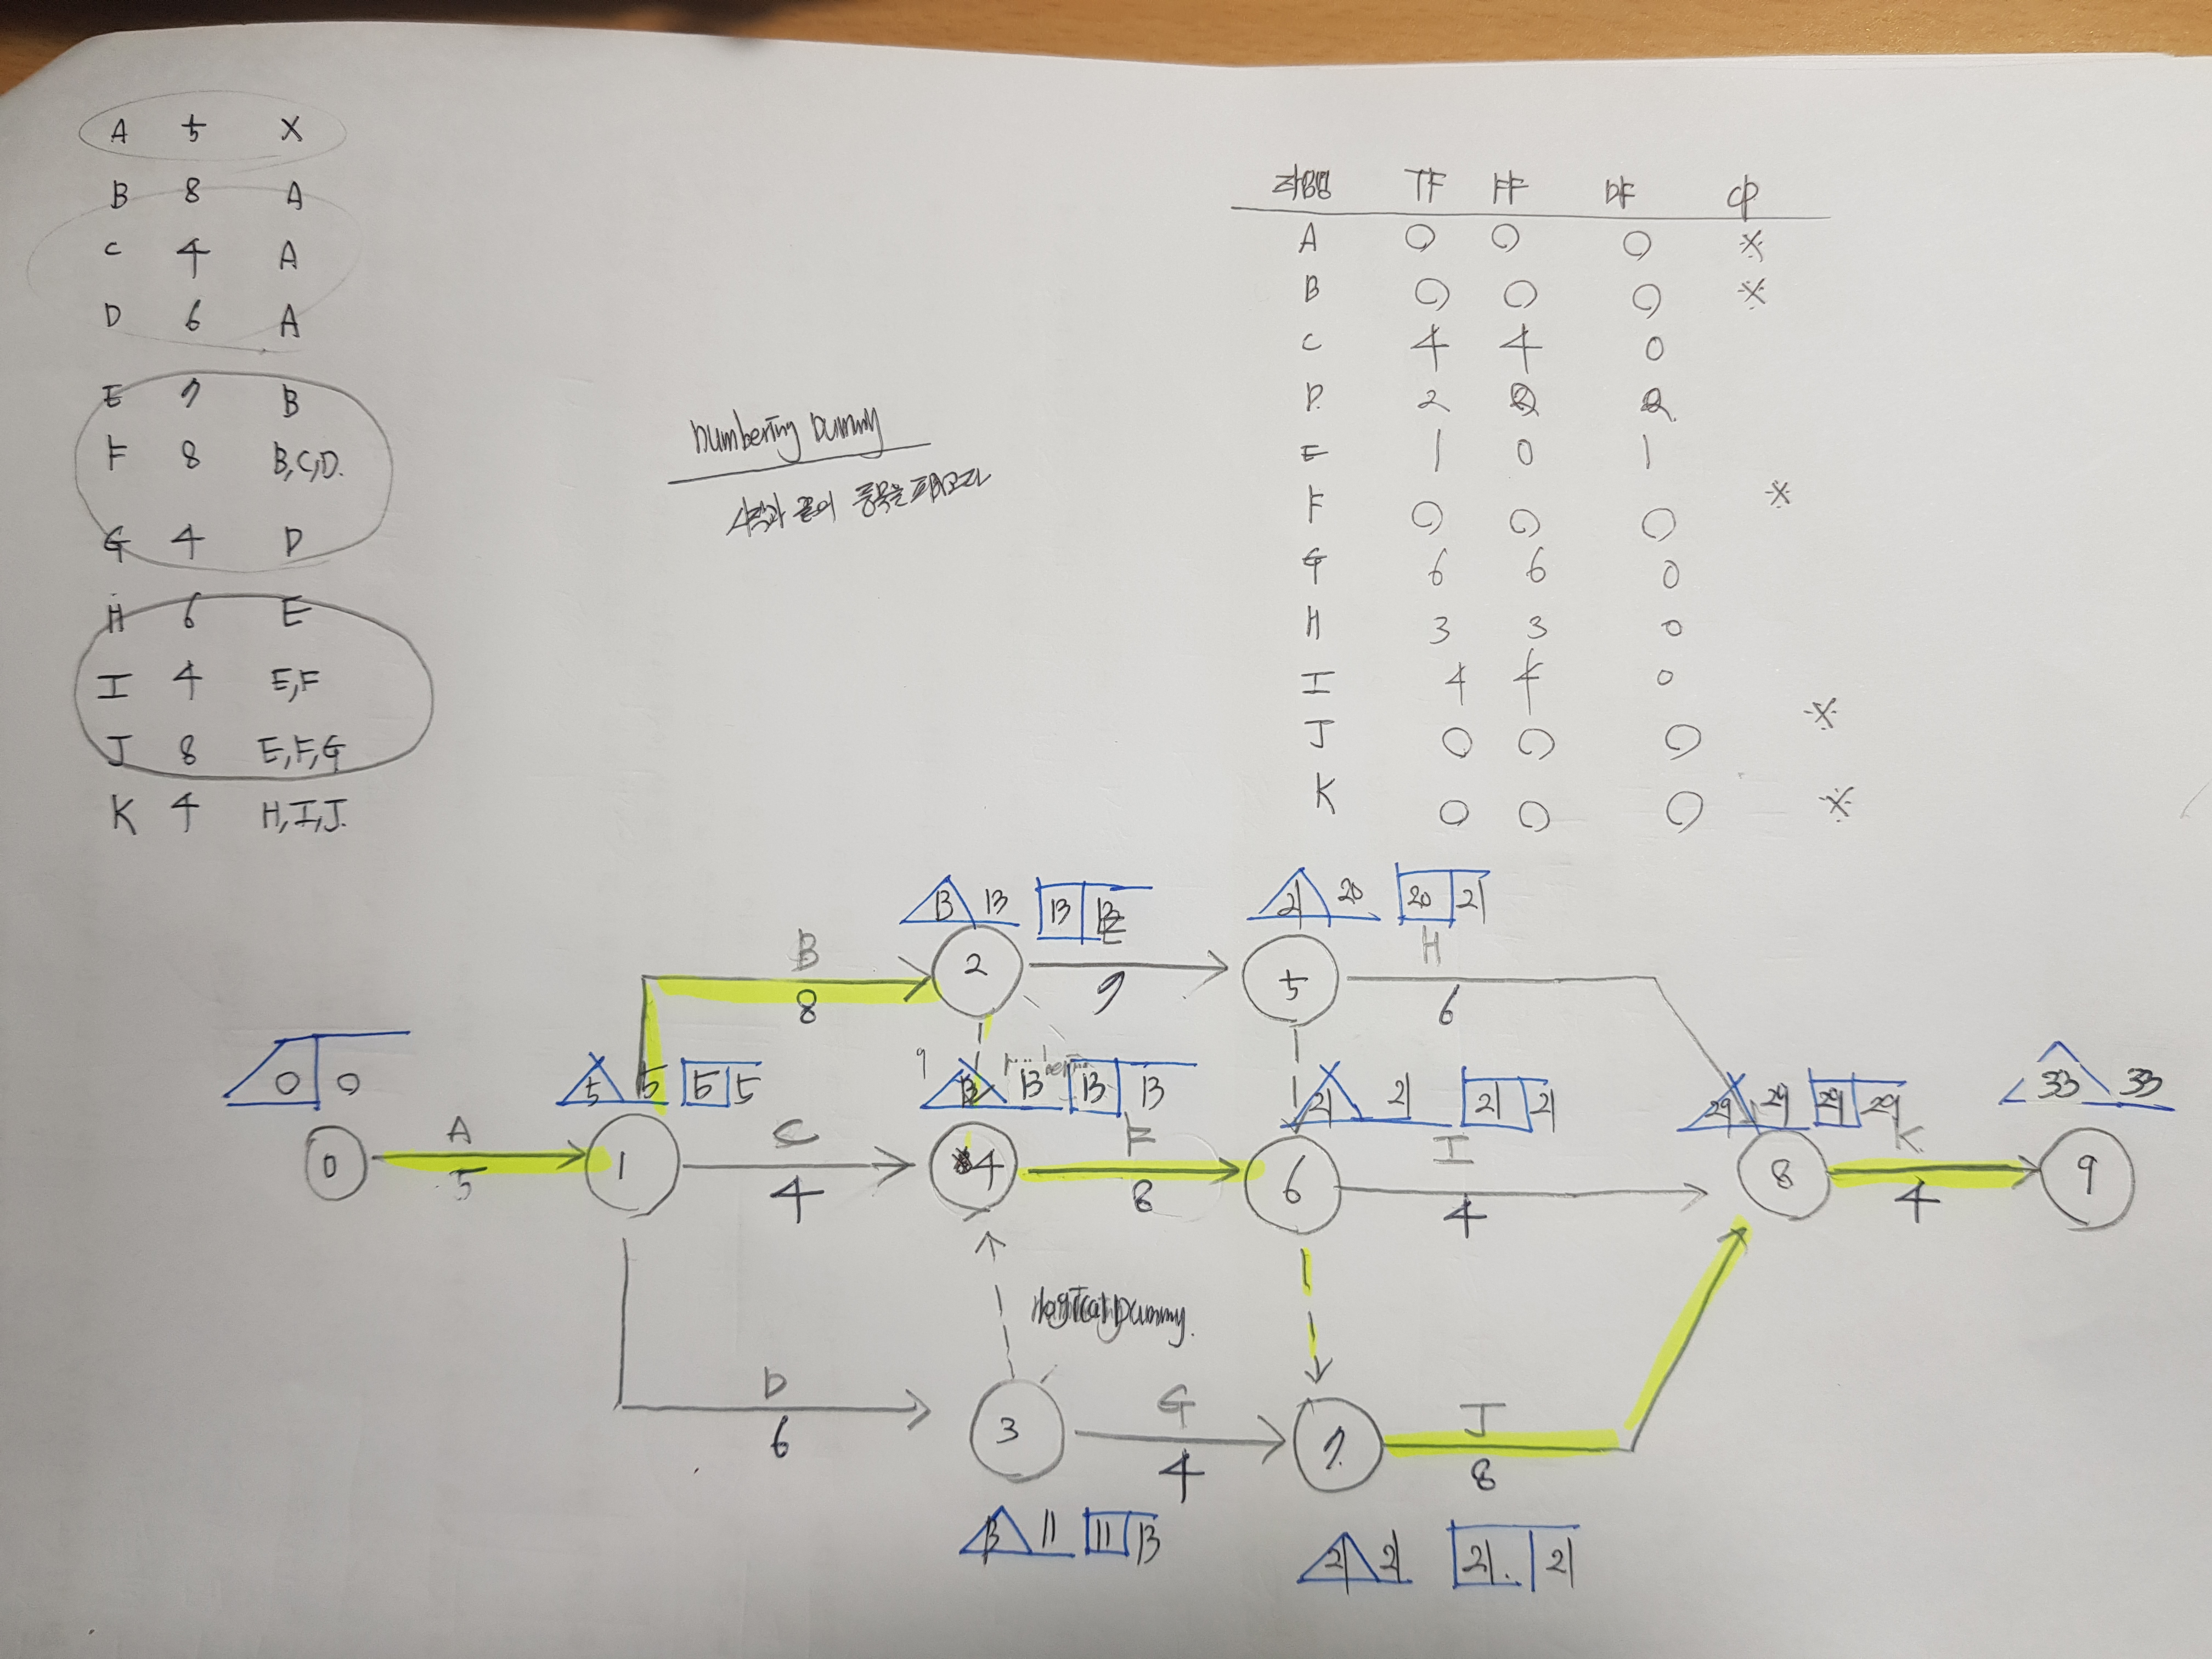 A 5 X
B 8 A
C 4 A
D 6 A
E 7 B
F 8 B,C,D.
G 4 D
H 6 E
I 4 E,F
J 8 E,F,G
K 4 H,I,J.
numbering Dummy
시작과 끝이 중복을 피하고자
작업명 TF FF DF CP
A 0 0 0 ※
B 0 0 0 ※
C 4 4 0
D. 2
E 1 0 1
F 0 0 0 ※
G 6 6 0
H 3 3 0
I 4 4 0
J 0 0 0 ※
K 0 0 0 ※
13 13 13
21 20 20 21
B E H
2 5
8 7 6
0 0
5 5 5 5
9
13 13 13
21 21 21 21
29 29 29 29
33 33
A C F I K
0 1 4 6 8 9
5 4 8 4 4
logical Dummy.
D G J
3 7
6 4 8
13 11 11 13
21 21 21. 21